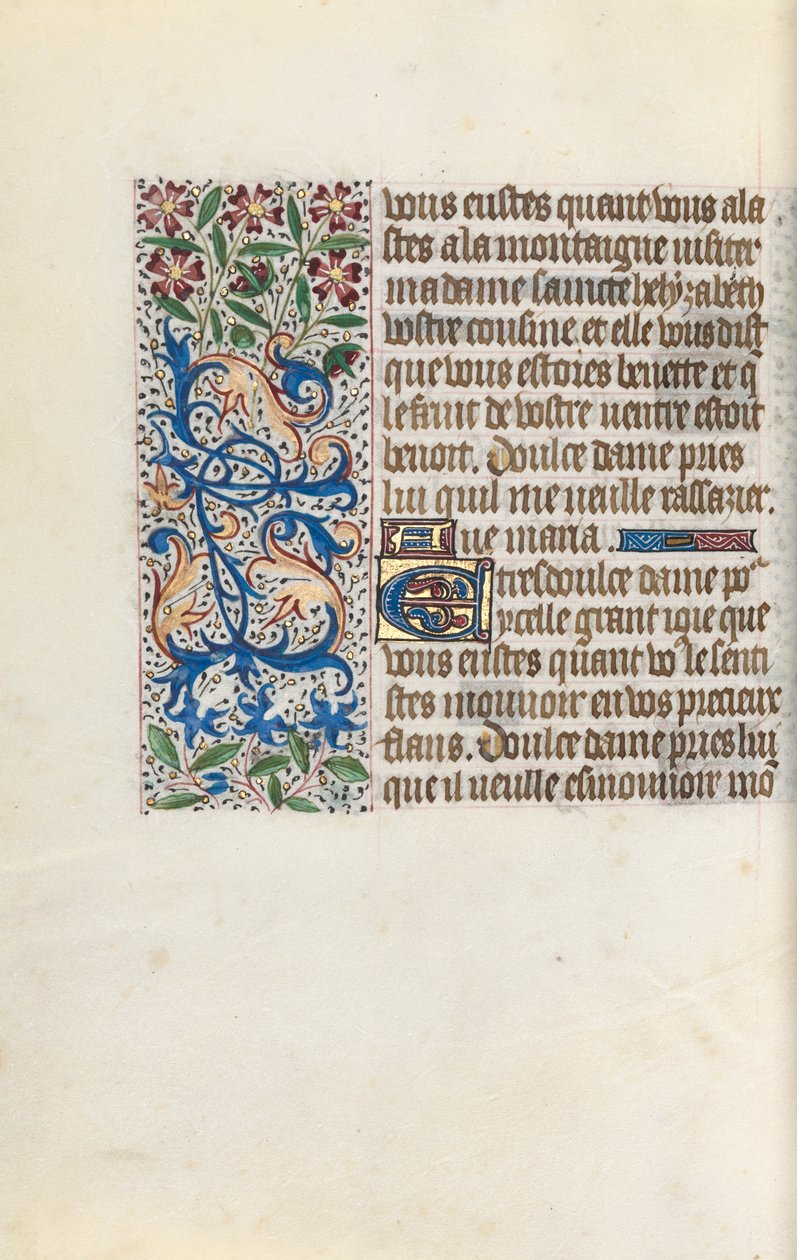 vous eustes quant vous ala
stes a la montaigne uisiter
madame saincte helyzabeth
vostre cousine et elle vous dist
que vous estoies benette et q̃
le fruit de vostre uentre estoit
benoit. Doulce dame pries
lui quil me ueulle rassazier.
Aue maria.
E tresdoulce dame po᷑
ycelle grant ioie que
vous eustes quant vo⁹ le senti
stes mouuoir en vos precieux
flans. Doulce dame pries lui
que il ueulle esmouuoir mõ